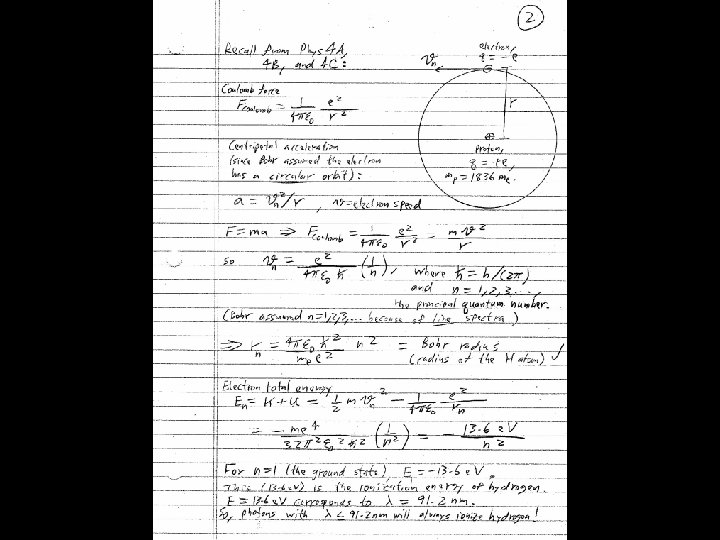 2
Recall from Phys 4A,
4B, and 4C:
electron,
q = -e
vₙ
r
Coulomb force
F_Coulomb = 1/(4πε₀) e²/r²
⊕
proton,
q = +e,
m_p = 1836 m_e.
Centripetal acceleration
(since Bohr assumed the electron
has a circular orbit):
a = vₙ²/r , v = electron speed
F = ma ⇒ F_Coulomb = 1/(4πε₀) e²/r² = m v²/r
so vₙ = e²/(4πε₀ ħ) (1/n), where ħ = h/(2π)
and n = 1, 2, 3...,
the principal quantum number.
(Bohr assumed n=1,2,3,... because of line spectra)
⇒ rₙ = 4πε₀ħ²/(m_e e²) n² = Bohr radius
(radius of the H atom) ✓
Electron total energy
Eₙ = K + U = 1/2 m vₙ² - 1/(4πε₀) e²/rₙ
= - me⁴/(32π²ε₀²ħ²) (1/n²) = - 13.6 eV/n²
For n=1 (the ground state), E = -13.6 eV.
This (13.6 eV) is the ionization energy of hydrogen.
E = 13.6 eV corresponds to λ = 91.2 nm.
So, photons with λ < 91.2 nm will always ionize hydrogen!